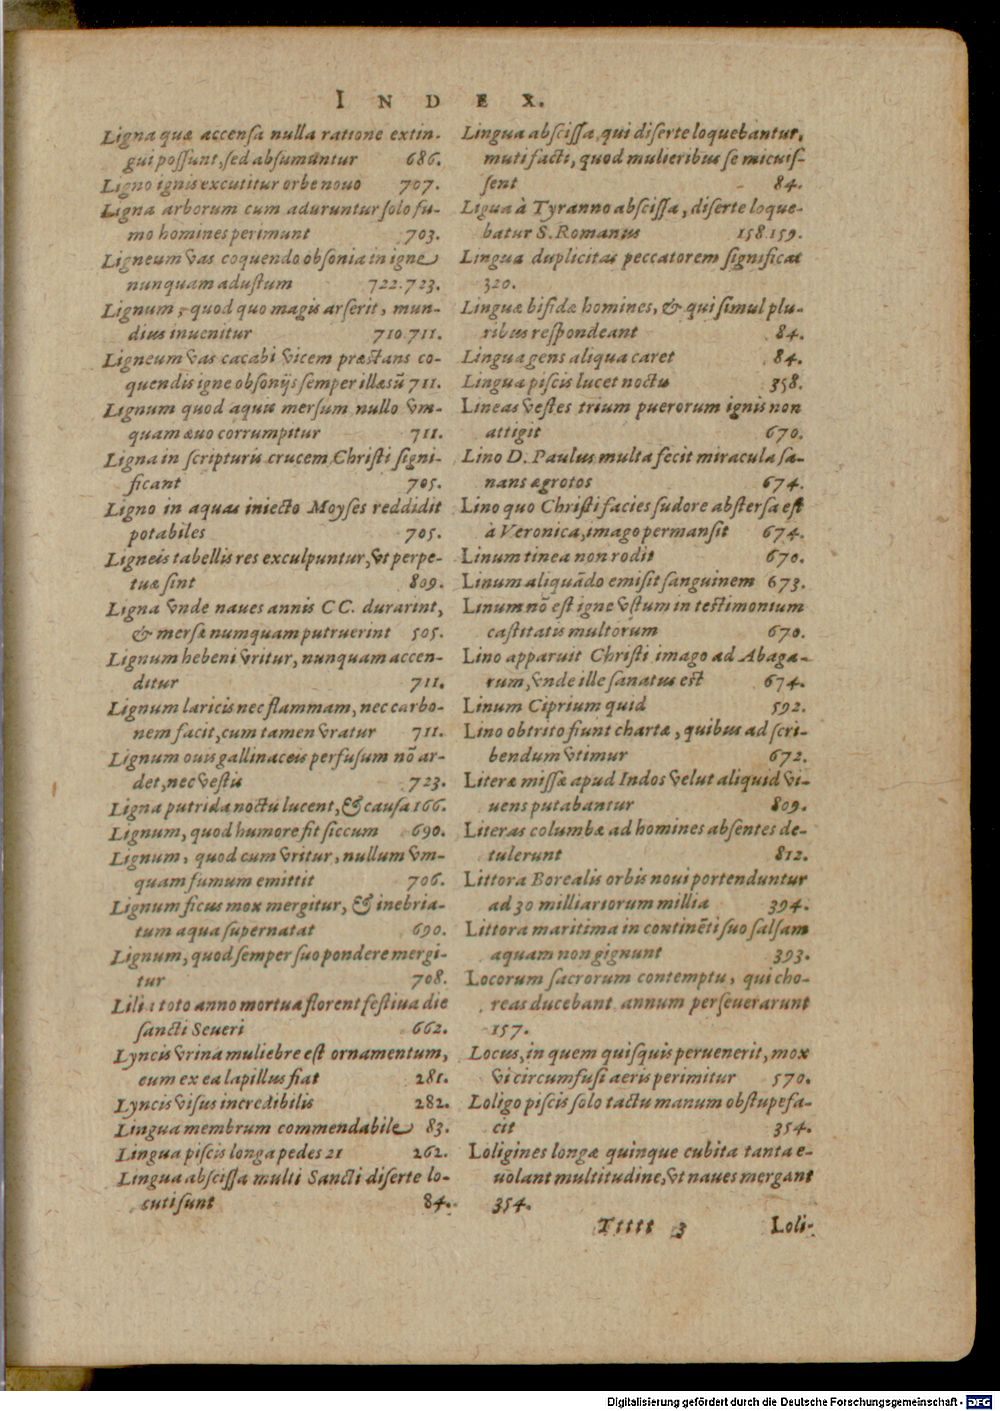 INDEX.
Ligna quæ accensa nulla ratione extin-
gui possunt, sed absumuntur 686.
Ligno ignis excutitur orbe nouo 707.
Ligna arborum cum aduruntur solo fu-
mo homines perimunt 703.
Ligneum vas coquendo obsonia in igne
nunquam adustum 722.723.
Lignum, quod quo magis arserit, mun-
dius inuenitur 710.711.
Ligneum vas cacabi vicem præstans co-
quendis igne obsonijs semper illæsũ 711.
Lignum quod aquis mersum nullo vm-
quam æuo corrumpitur 711.
Ligna in scripturis crucem Christi signi-
ficant 705.
Ligno in aquas iniecto Moyses reddidit
potabiles 705.
Ligneis tabellis res exculpuntur, vt perpe-
tuæ sint 809.
Ligna vnde naues annis CC. durarint,
& mersæ numquam putruerint 505.
Lignum hebeni vritur, nunquam accen-
ditur 711.
Lignum laricis nec flammam, nec carbo-
nem facit, cum tamen vratur 711.
Lignum ouis gallinaceis perfusum nõ ar-
det, nec vestis 723.
Ligna putrida noctu lucent, & causa 166.
Lignum, quod humore fit siccum 690.
Lignum, quod cum vritur, nullum vm-
quam fumum emittit 706.
Lignum ficus mox mergitur, & inebria-
tum aqua supernatat 690.
Lignum, quod semper suo pondere mergi-
tur 708.
Lilia toto anno mortua florent festiua die
sancti Seueri 662.
Lyncis vrina muliebre est ornamentum,
eum ex ea lapillus fiat 281.
Lyncis visus incredibilis 282.
Lingua membrum commendabile 83.
Lingua piscis longa pedes 21 262.
Lingua abscissa multi Sancti diserte lo-
cuti sunt 84.
Lingua abscissa, qui diserte loquebantur,
muti facti, quod mulieribus se micuis-
sent 84.
Ligua à Tyranno abscissa, diserte loque-
batur S. Romanus 158.159.
Lingua duplicitas peccatorem significat
320.
Linguæ bifidæ homines, & qui simul plu-
ribus respondeant 84.
Lingua gens aliqua caret 84.
Lingua piscis lucet noctu 358.
Lineas vestes trium puerorum ignis non
attigit 670.
Lino D. Paulus multa fecit miracula sa-
nans ægrotos 674.
Lino quo Christi facies sudore abstersa est
à Veronica, imago permansit 674.
Linum tinea non rodit 670.
Linum aliquãdo emisit sanguinem 673.
Linum nõ est igne vstum in testimonium
castitatis multorum 670.
Lino apparuit Christi imago ad Abaga-
rum, vnde ille sanatus est 674.
Linum Ciprium quid 592.
Lino obtrito fiunt chartæ, quibus ad scri-
bendum vtimur 672.
Literæ missæ apud Indos velut aliquid vi-
uens putabantur 809.
Literas columbæ ad homines absentes de-
tulerunt 812.
Littora Borealis orbis noui portenduntur
ad 30 milliariorum millia 394.
Littora maritima in continẽti suo salsam
aquam non gignunt 393.
Locorum sacrorum contemptu, qui cho-
reas ducebant annum perseuerarunt
157.
Locus, in quem quisquis peruenerit, mox
vi circumfusi aeris perimitur 570.
Loligo piscis solo tactu manum obstupefa-
cit 354.
Loligines longæ quinque cubita tanta e-
uolant multitudine, vt naues mergant
354.
Ttttt 3 Loli-
Digitalisierung gefördert durch die Deutsche Forschungsgemeinschaft - DFG